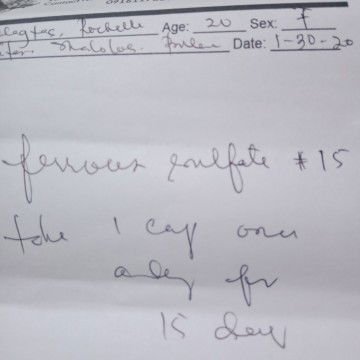 Rochelle Age: 20 Sex: F
Malolos. Date: 1-30-20
ferrous sulfate #15
take 1 cap once
a day for
15 day